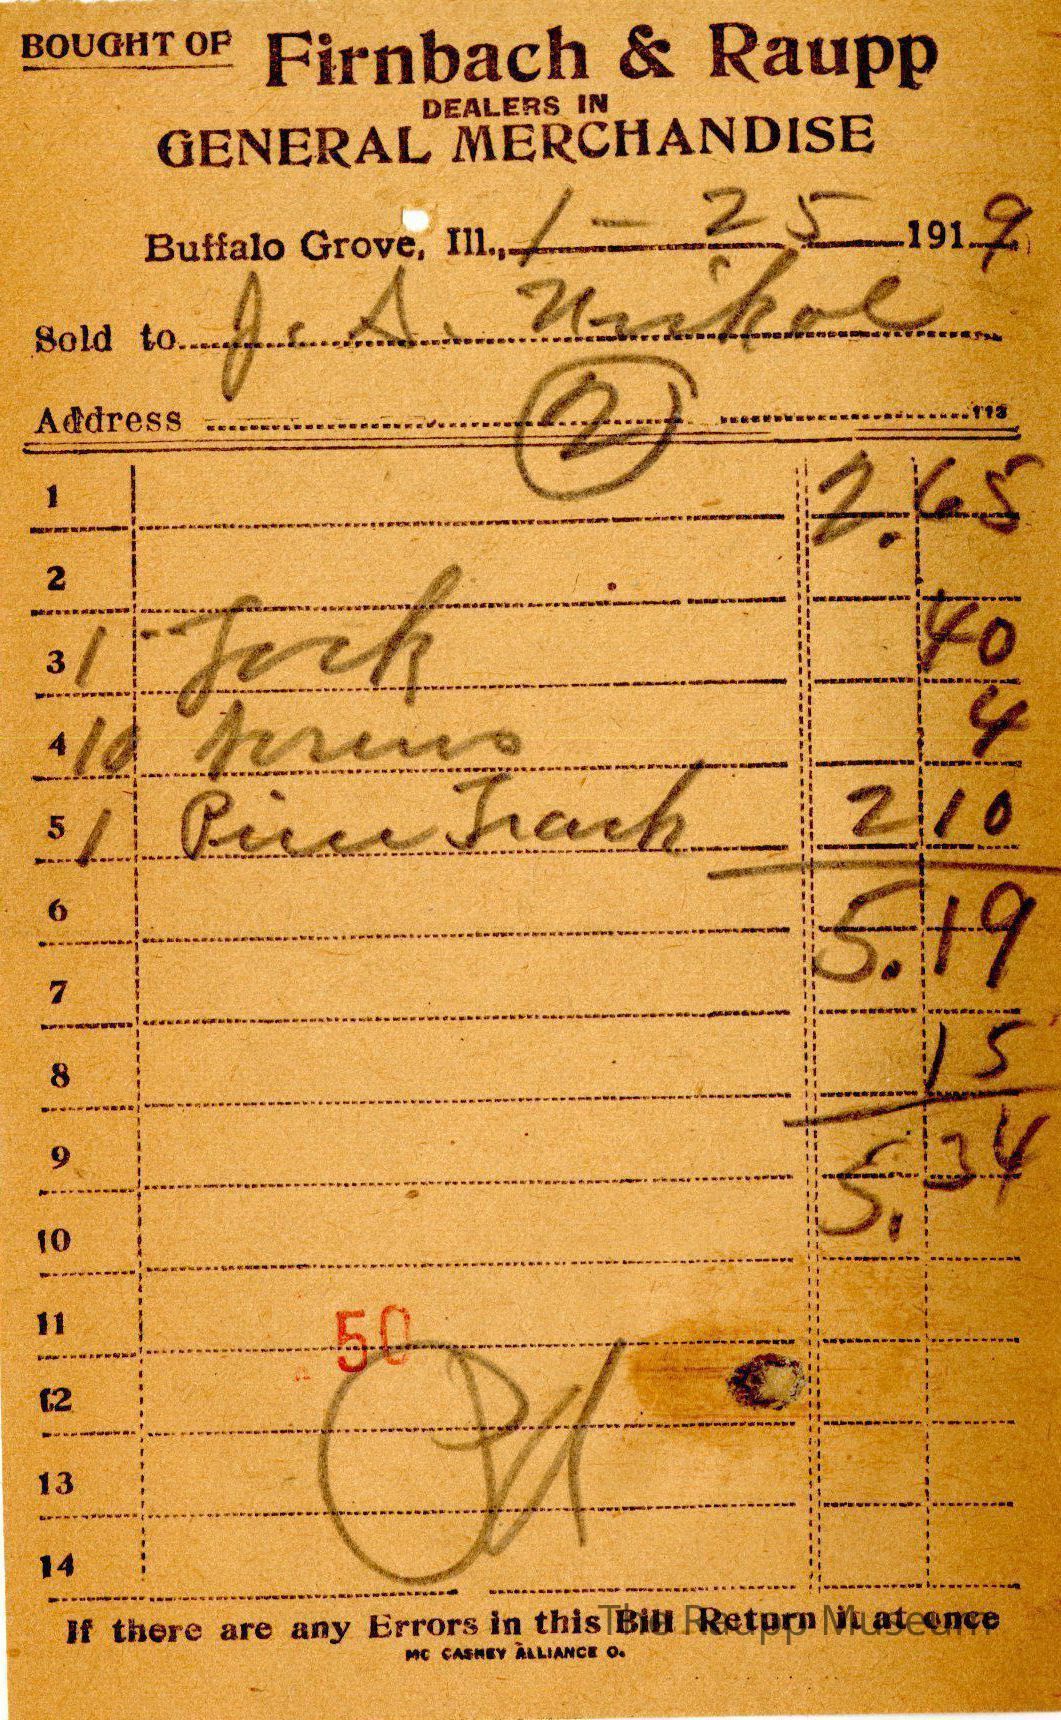 BOUGHT OF Firnbach & Raupp
DEALERS IN
GENERAL MERCHANDISE
Buffalo Grove, Ill., 1-25 1919
Sold to J. D.
Address 2 113
1 2.65
2
3 1 Lock 40
4 10 screws 4
5 1 Piece Track 2 10
6 5.19
7
8 15
9 5.34
10
11 50
12 Pd
13
14
If there are any Errors in this Bill Return it at once
The Raupp Museum
MC CASKEY ALLIANCE O.